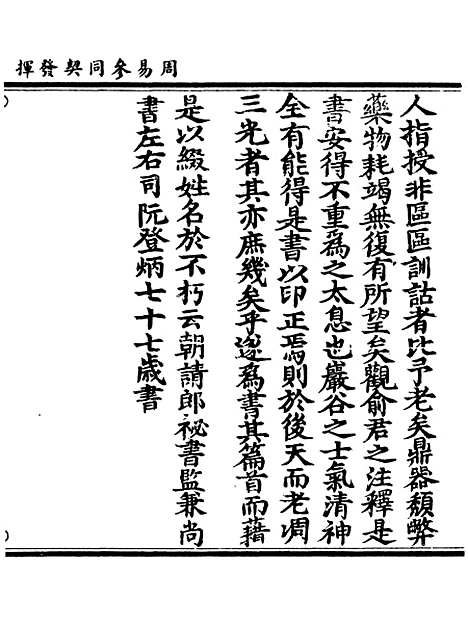 周易參同契發揮
人指授非區區訓詁者比予老矣鼎器頹弊
藥物耗竭無復有所望矣觀俞君之注釋是
書安得不重爲之太息也巖谷之士氣清神
全有能得是書以印正焉則於後天而老凋
三光者其亦庶幾矣乎遂爲書其篇首而藉
是以綴姓名於不朽云朝請郎祕書監兼尚
書左右司阮登炳七十七歲書